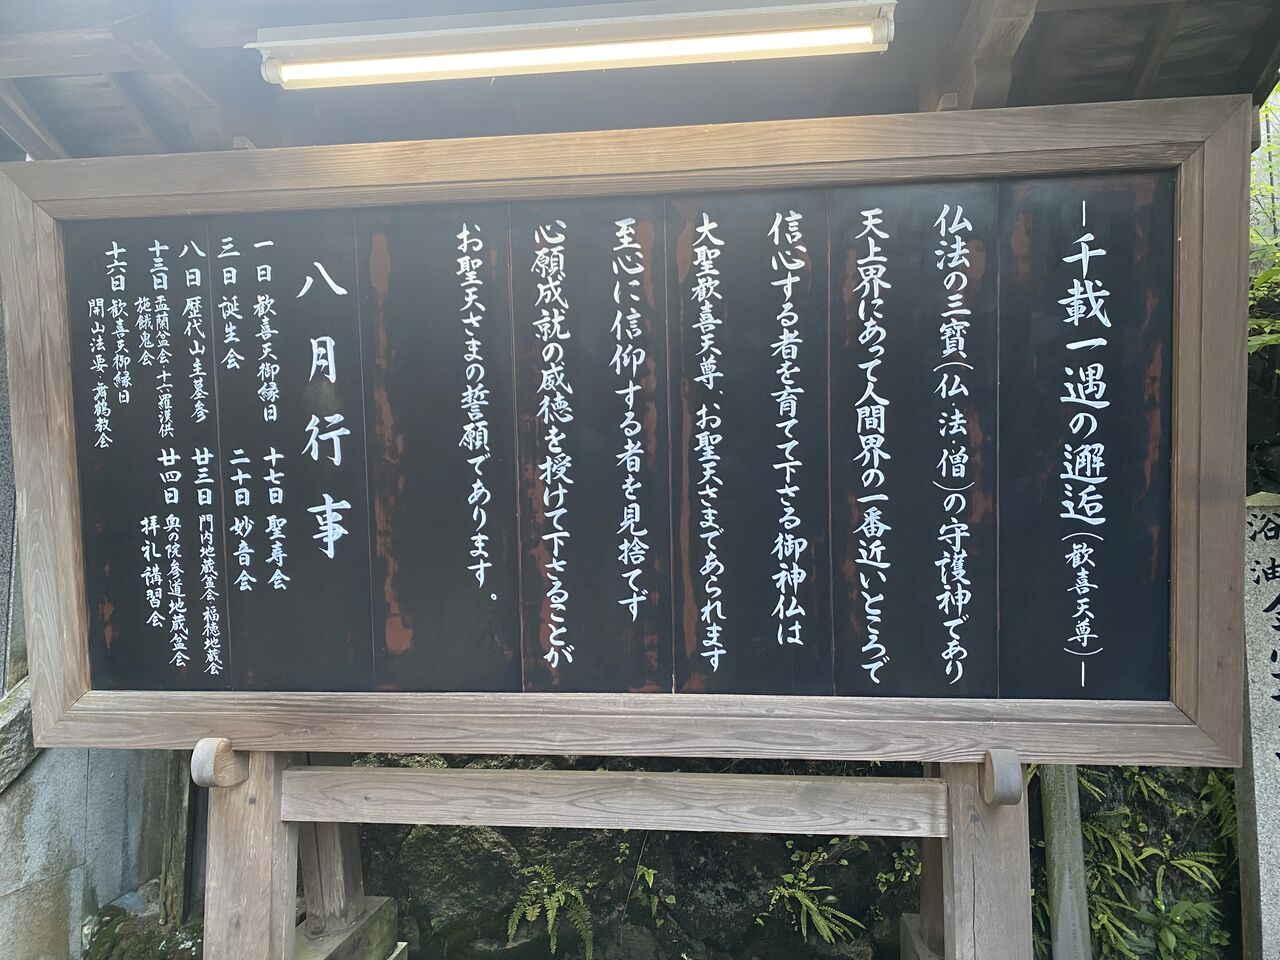 ―千載一遇の邂逅(歓喜天尊)―
仏法の三寳(仏・法・僧)の守護神であり
天上界にあって人間界の一番近いところで
信心する者を育てて下さる御神仏は
大聖歓喜天尊、お聖天さまであられます
至心に信仰する者を見捨てず
心願成就の威徳を授けて下さることが
お聖天さまの誓願であります。
八月行事
一日 歓喜天御縁日
三日 誕生会
八日 歴代山主墓参
十三日 盂蘭盆会・十六羅漢供
施餓鬼会
十六日 歓喜天御縁日
開山法要・舞鶴教会
十七日 聖寿会
二十日 妙音会
廿三日 門内地蔵盆会・福徳地蔵会
廿四日 奥の院参道地蔵盆会
拝礼講習会
浴油